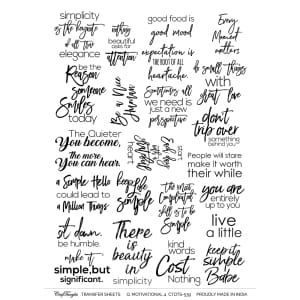 simplicity
is the keynote
of all true
elegance
nothing
beautiful
asks for
attention
good food is
good mood
expectation is
THE ROOT OF ALL
heartache.
Every
Moment
matters
be the
Reason
Someone
Smiles
today
Be a Nice
Human
Sometimes all
we need is
just a new
perspective
do small things
with
great love
don't
trip over
something
behind you
The Quieter
You become,
the more
You can hear.
People will stare
make it worth
their while
a Simple Hello
could lead to
a Million Things
Keep
life
Simple
The Most
Complicated
Skill is
To Be
Simple
you are
entirely
up to you
sit down.
be humble.
make it
simple,but
significant.
There
is
beauty
in
Simple
kind
words
Cost
Nothing
live
a little
keep it
simple
Babe
CrafTangles
TRANSFER SHEETS
MOTIVATIONAL 4
PROUDLY MADE IN INDIA